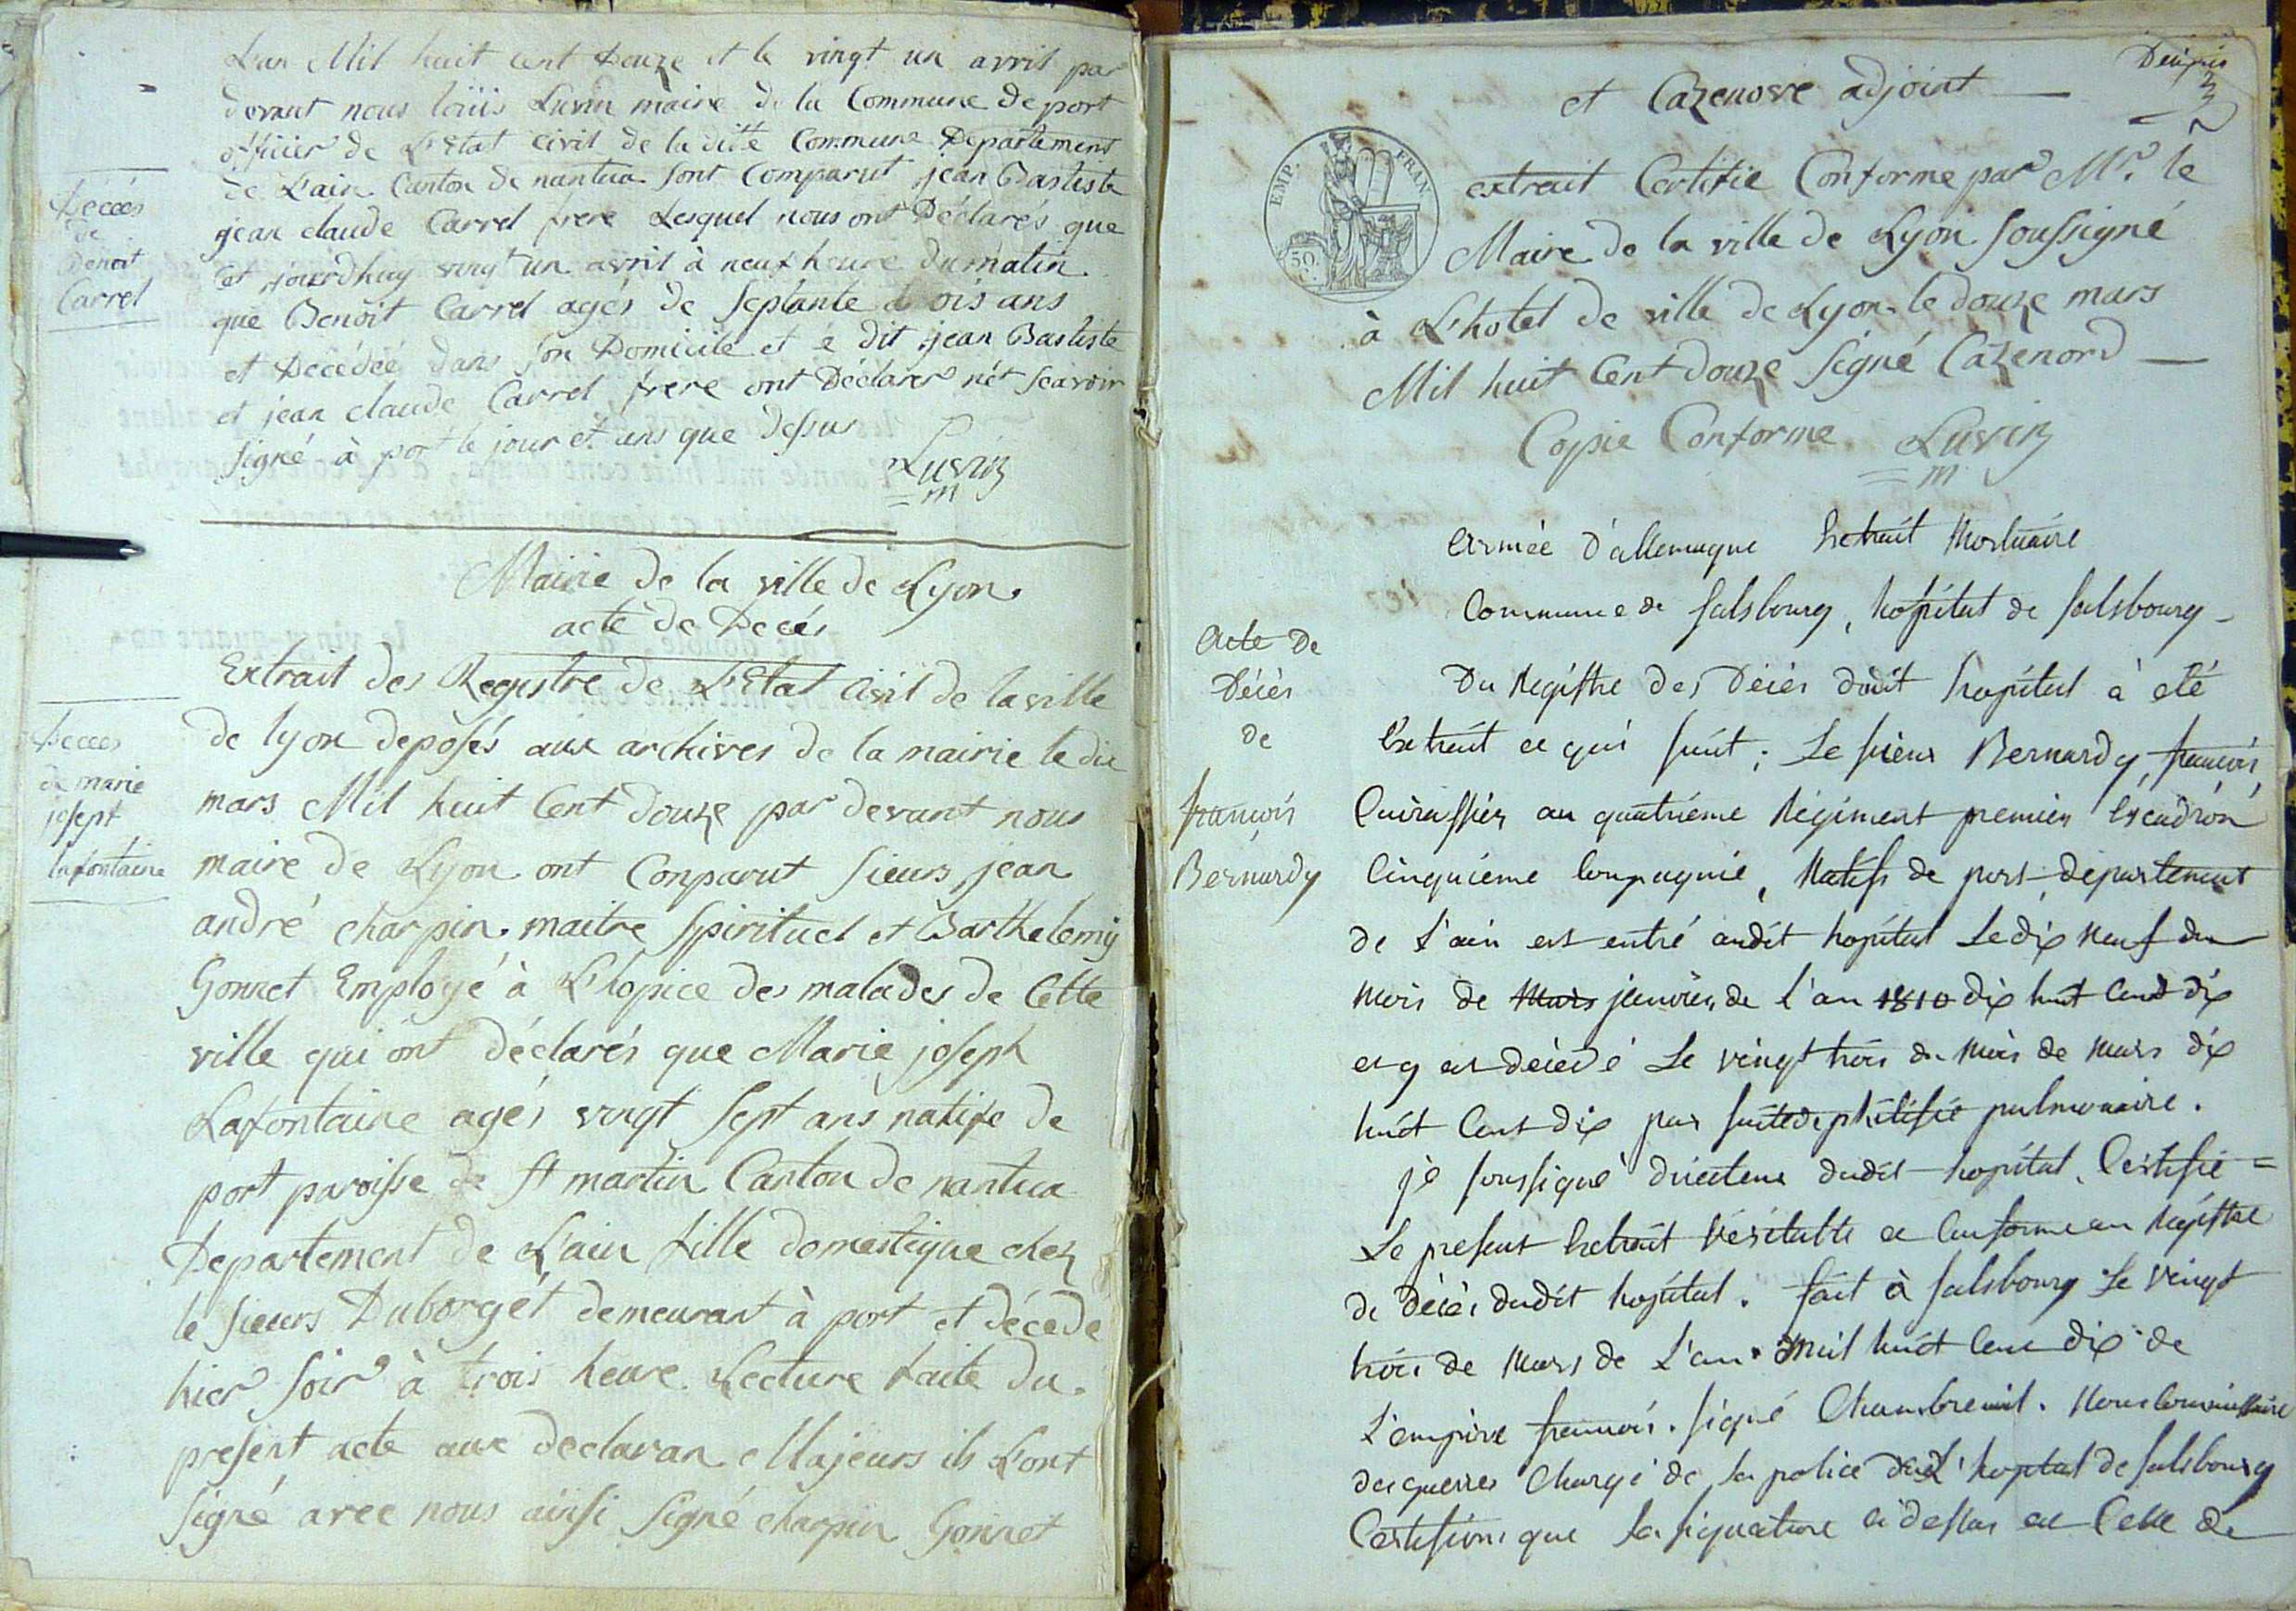 L'an Mil huit cent Douze et le vingt un avril par
devant nous loüis Luvin maire de la Commune de port
officier de L'Etat civil de la ditte Commune Departement
de L'ain Canton de nantua sont Comparut jean Bastiste
jean claude Carrel frere Lesquel nous ont Déclarés que
cet jourdhuy vingt un avril à neuf heure du matin
que Benoit Carrel agés de septante trois ans
et Décédée dans son Domicile et le dit jean Bastiste
et jean claude Carrel frere ont Déclarer nét scavoir
signé à port le jour et ans que dessus
Luvin
m
Décés
de
Benoit
Carrel
Mairie de la ville de Lyon
acte de Decés
Extrait des Registre de L'Etat Civil de la ville
de lyon deposés aux archives de la mairie le dix
mars Mil huit Cent douze par devant nous
maire de Lyon ont Conparut sieurs jean
andré charpin maitre spirituel et Barthelemy
Gonnet Employé à L'hopice des malades de Cette
ville qui ont déclarés que Marie joseph
Lafontaine agés vingt sept ans natife de
port paroisse de st martin Canton de nantua
Departement de L'ain fille domestique chez
le sieurs Duborgét demeurant à port et décede
hier soir à trois heure Lecture faite du
present acte aux declaran Majeurs ils L'ont
signé avec nous ainsi signé charpin Gonnet
Decees
de marie
josept
lafontaine
et Cazenove adjoint
extrait Certifie Conforme par Mr. le
Maire de la ville de Lyon soussigné
à L'hotel de ville de Lyon le douze mars
Mil huit Cent douze signé Cazenord
Copie Conforme Luvin
m
EMP. FRAN
50.
C.
Armée d'allemagne Extrait Mortuaire
Commune de salsbourg, hopital de salsbourg
Du Registre des Décés dudit hopital à eté
Extrait ce qui suit; Le sieur Bernardy, francois,
Cuirassier au quatrième Régiment premier Escadron
Cinquième Compagnie, Natifs de port département
de L'ain est entré audit hopital Le dix neuf du
mois de Mars janvier de L'an 1810 dix huit Cent dix
et y est décedé Le vingt trois du mois de mars dix
huit Cent dix par suite de phtisie pulmonaire.
jè soussigné directeur dudit hopital, Certifie =
Le present Extrait Véritable et Conforme au Registre
de décès dudit hopital. fait à salsbourg Le vingt
trois de mars de L'an mil huit Cent dix de
L'empire francois. signé Chambreuil. Nous Commissaire
des guerres Chargé de la police de L'hopital de salsbourg
Certifions que la signature ci dessus est Celle de
Acte de
Décès
de
francois
Bernardy